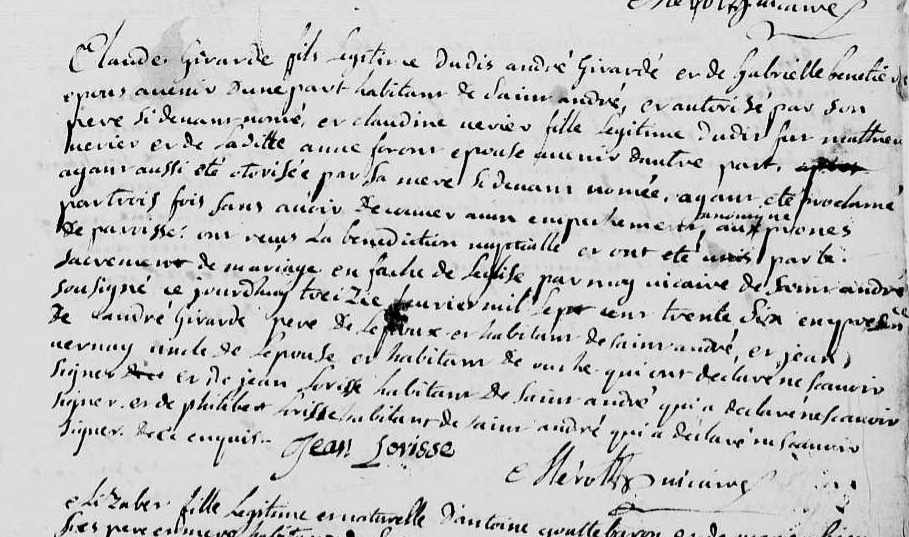 vicaire
Claude Girarde fils legitime dudis andré Girardé er de Gabrielle benetier
epous avenir dune part habitant de saint andré, er autorisé par son
pere si devant nomé, er claudine verier fille légitime dudis fut matthieu
verier er de laditte anne foront epouse avenir dautre part,
ayant aussi eté otorisée par sa mere si devant nomée, ayant eté proclamé
par trois fois sans avoir decouver aucun empechement canonique aux prones
de paroisse: ont reçus la benediction nuptialle er ont eté unis par le
sacrement de mariage en fache de leglise par moy vicaire de saint andré
sousigné ce jourdhuy treizie fevrier mil sept cens trente six en presence
de andré Girarde pere de lepoux er habitant de saint andré, er jean
vernay oncle de lepouse er habitant de ouche qui ont declaré ne scavoir
signer er de jean lorisse habitant de saint andré qui a declaré ne scavoir
signer. er de philiber lorisse habitant de saint andré qui a déclaré ne scavoir
signer de ce enquis..
Jean Lorisse
vicaire
elizaber fille legitime er naturelle d'antoine er de
ses pere er mere